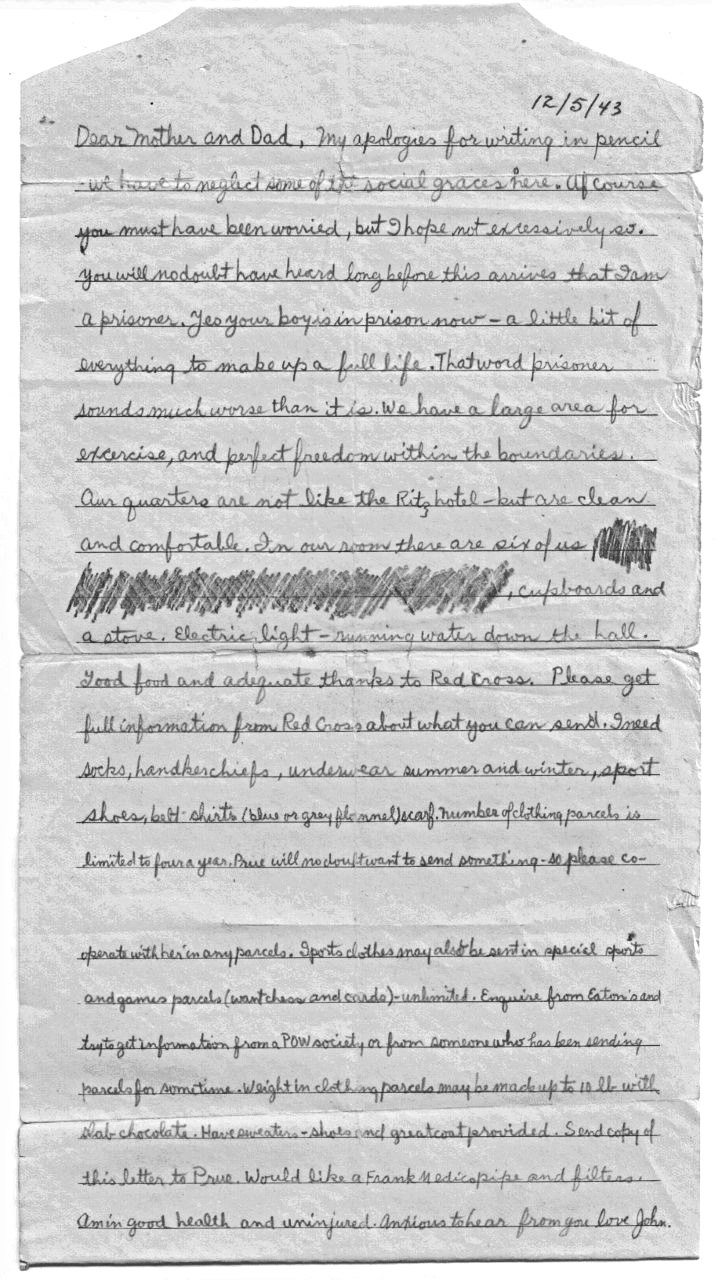 12/5/43
Dear Mother and Dad, My apologies for writing in pencil
- we have to neglect some of the social graces here. Of course
you must have been worried, but I hope not excessively so.
You will no doubt have heard long before this arrives that I am
a prisoner. Yes your boy is in prison now - a little bit of
everything to make up a full life. That word prisoner
sounds much worse than it is. We have a large area for
excercise, and perfect freedom within the boundaries.
Our quarters are not like the Ritz hotel - but are clean
and comfortable. In our room there are six of us
, cupboards and
a stove. Electric light - running water down the hall.
Food food and adequate thanks to Red Cross. Please get
full information from Red Cross about what you can send. I need
socks, handkerchiefs, underwear summer and winter, sport
shoes, belt - shirts (blue or grey flannel) scarf. Number of clothing parcels is
limited to four a year. Prue will no doubt want to send something - so please co-
operate with her in any parcels. Sports clothes may also be sent in special sports
and games parcels (want chess and cards) - unlimited. Enquire from Eaton's and
try to get information from a POW society or from someone who has been sending
parcels for sometime. Weight in clothing parcels may be made up to 10 lb with
slab chocolate. Have sweaters - shoes and greatcoat provided. Send copy of
this letter to Prue. Would like a Frank Medico pipe and filters.
Am in good health and uninjured. Anxious to hear from you love John.